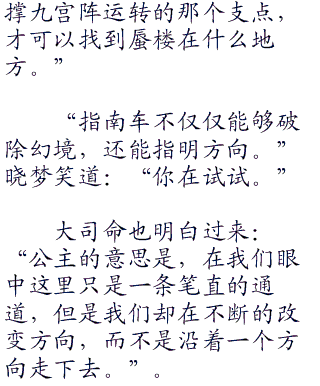 撑九宫阵运转的那个支点，
才可以找到蜃楼在什么地
方。”
“指南车不仅仅能够破
除幻境，还能指明方向。”
晓梦笑道：“你在试试。”
大司命也明白过来：
“公主的意思是，在我们眼
中这里只是一条笔直的通
道，但是我们却在不断的改
变方向，而不是沿着一个方
向走下去。”。